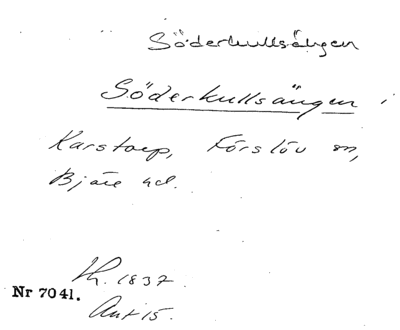 Söderkullsängen
Söderkullsängen i
Karstorp, Förslöv sn,
Bjäre hd.
Lh. 1837.
Nr 7041.
Akt 15.